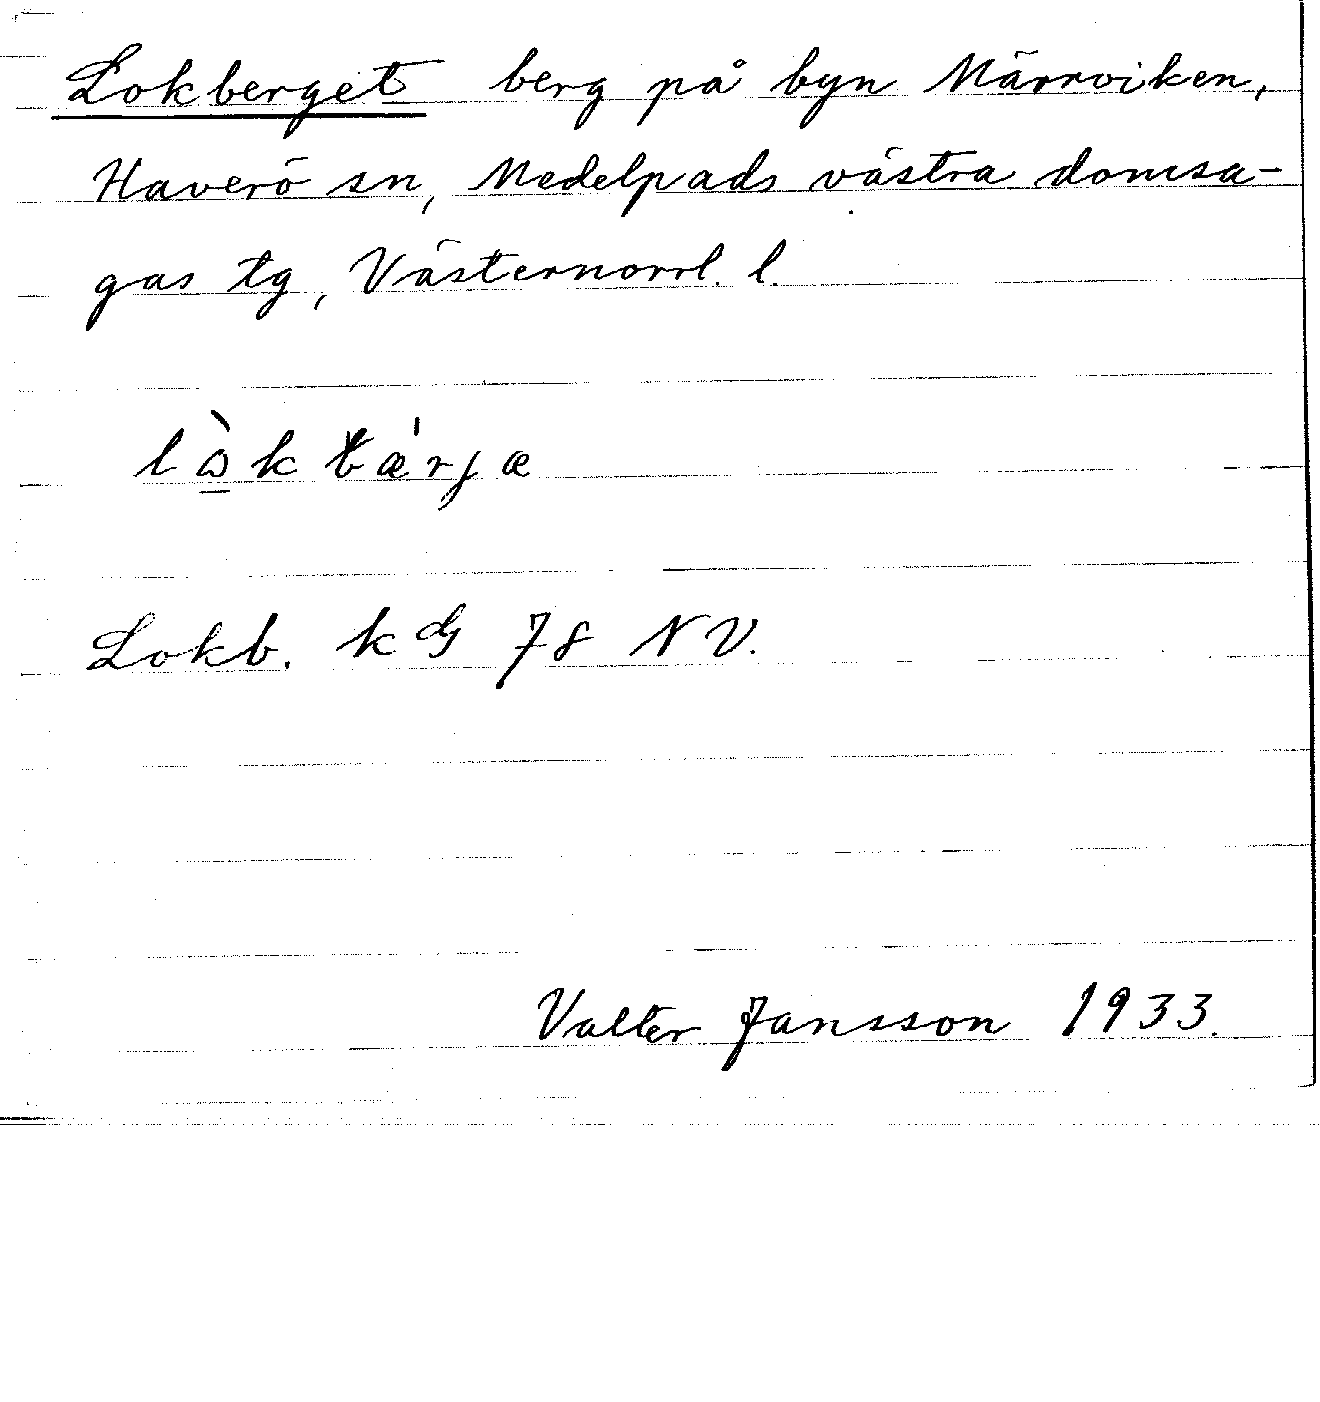 Lokberget berg på byn Märrviken,
Haverö sn, Medelpads västra domsa-
gas tg, Västernorrl. l.
Lokb. kG 78 NV.
Valter Jansson 1933.